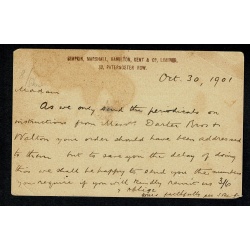 SIMPKIN, MARSHALL, HAMILTON, KENT & CO., LIMITED,
32, PATERNOSTER ROW.
Oct. 30, 1901
Madam
As we only send the periodicals on
instructions from Messrs Darter Bros &
Walton your order should have been addressed
to them but to save you the delay of doing
this we shall be happy to send you the numbers
you require if you will kindly remit us 3/6
& oblige
yours faithfully